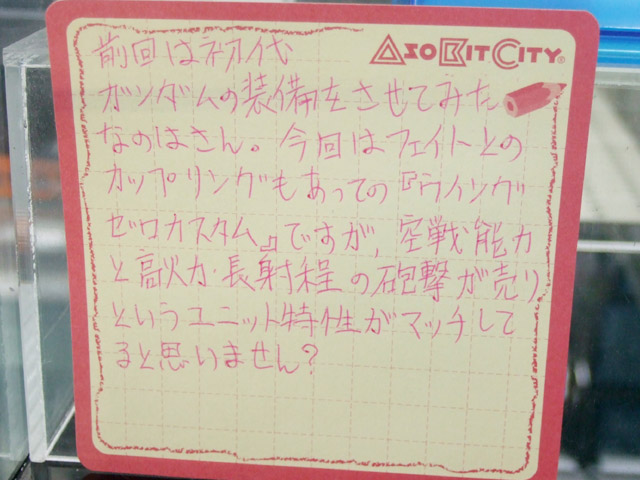 ASOBITCITY®
前回は初代
ガンダムの装備をさせてみた
なのはさん。今回はフェイトとの
カップリングもあっての『ウイング
ゼロカスタム』ですが、空戦能力
と高火力・長射程の砲撃が売り
というユニット特性がマッチして
ると思いません?